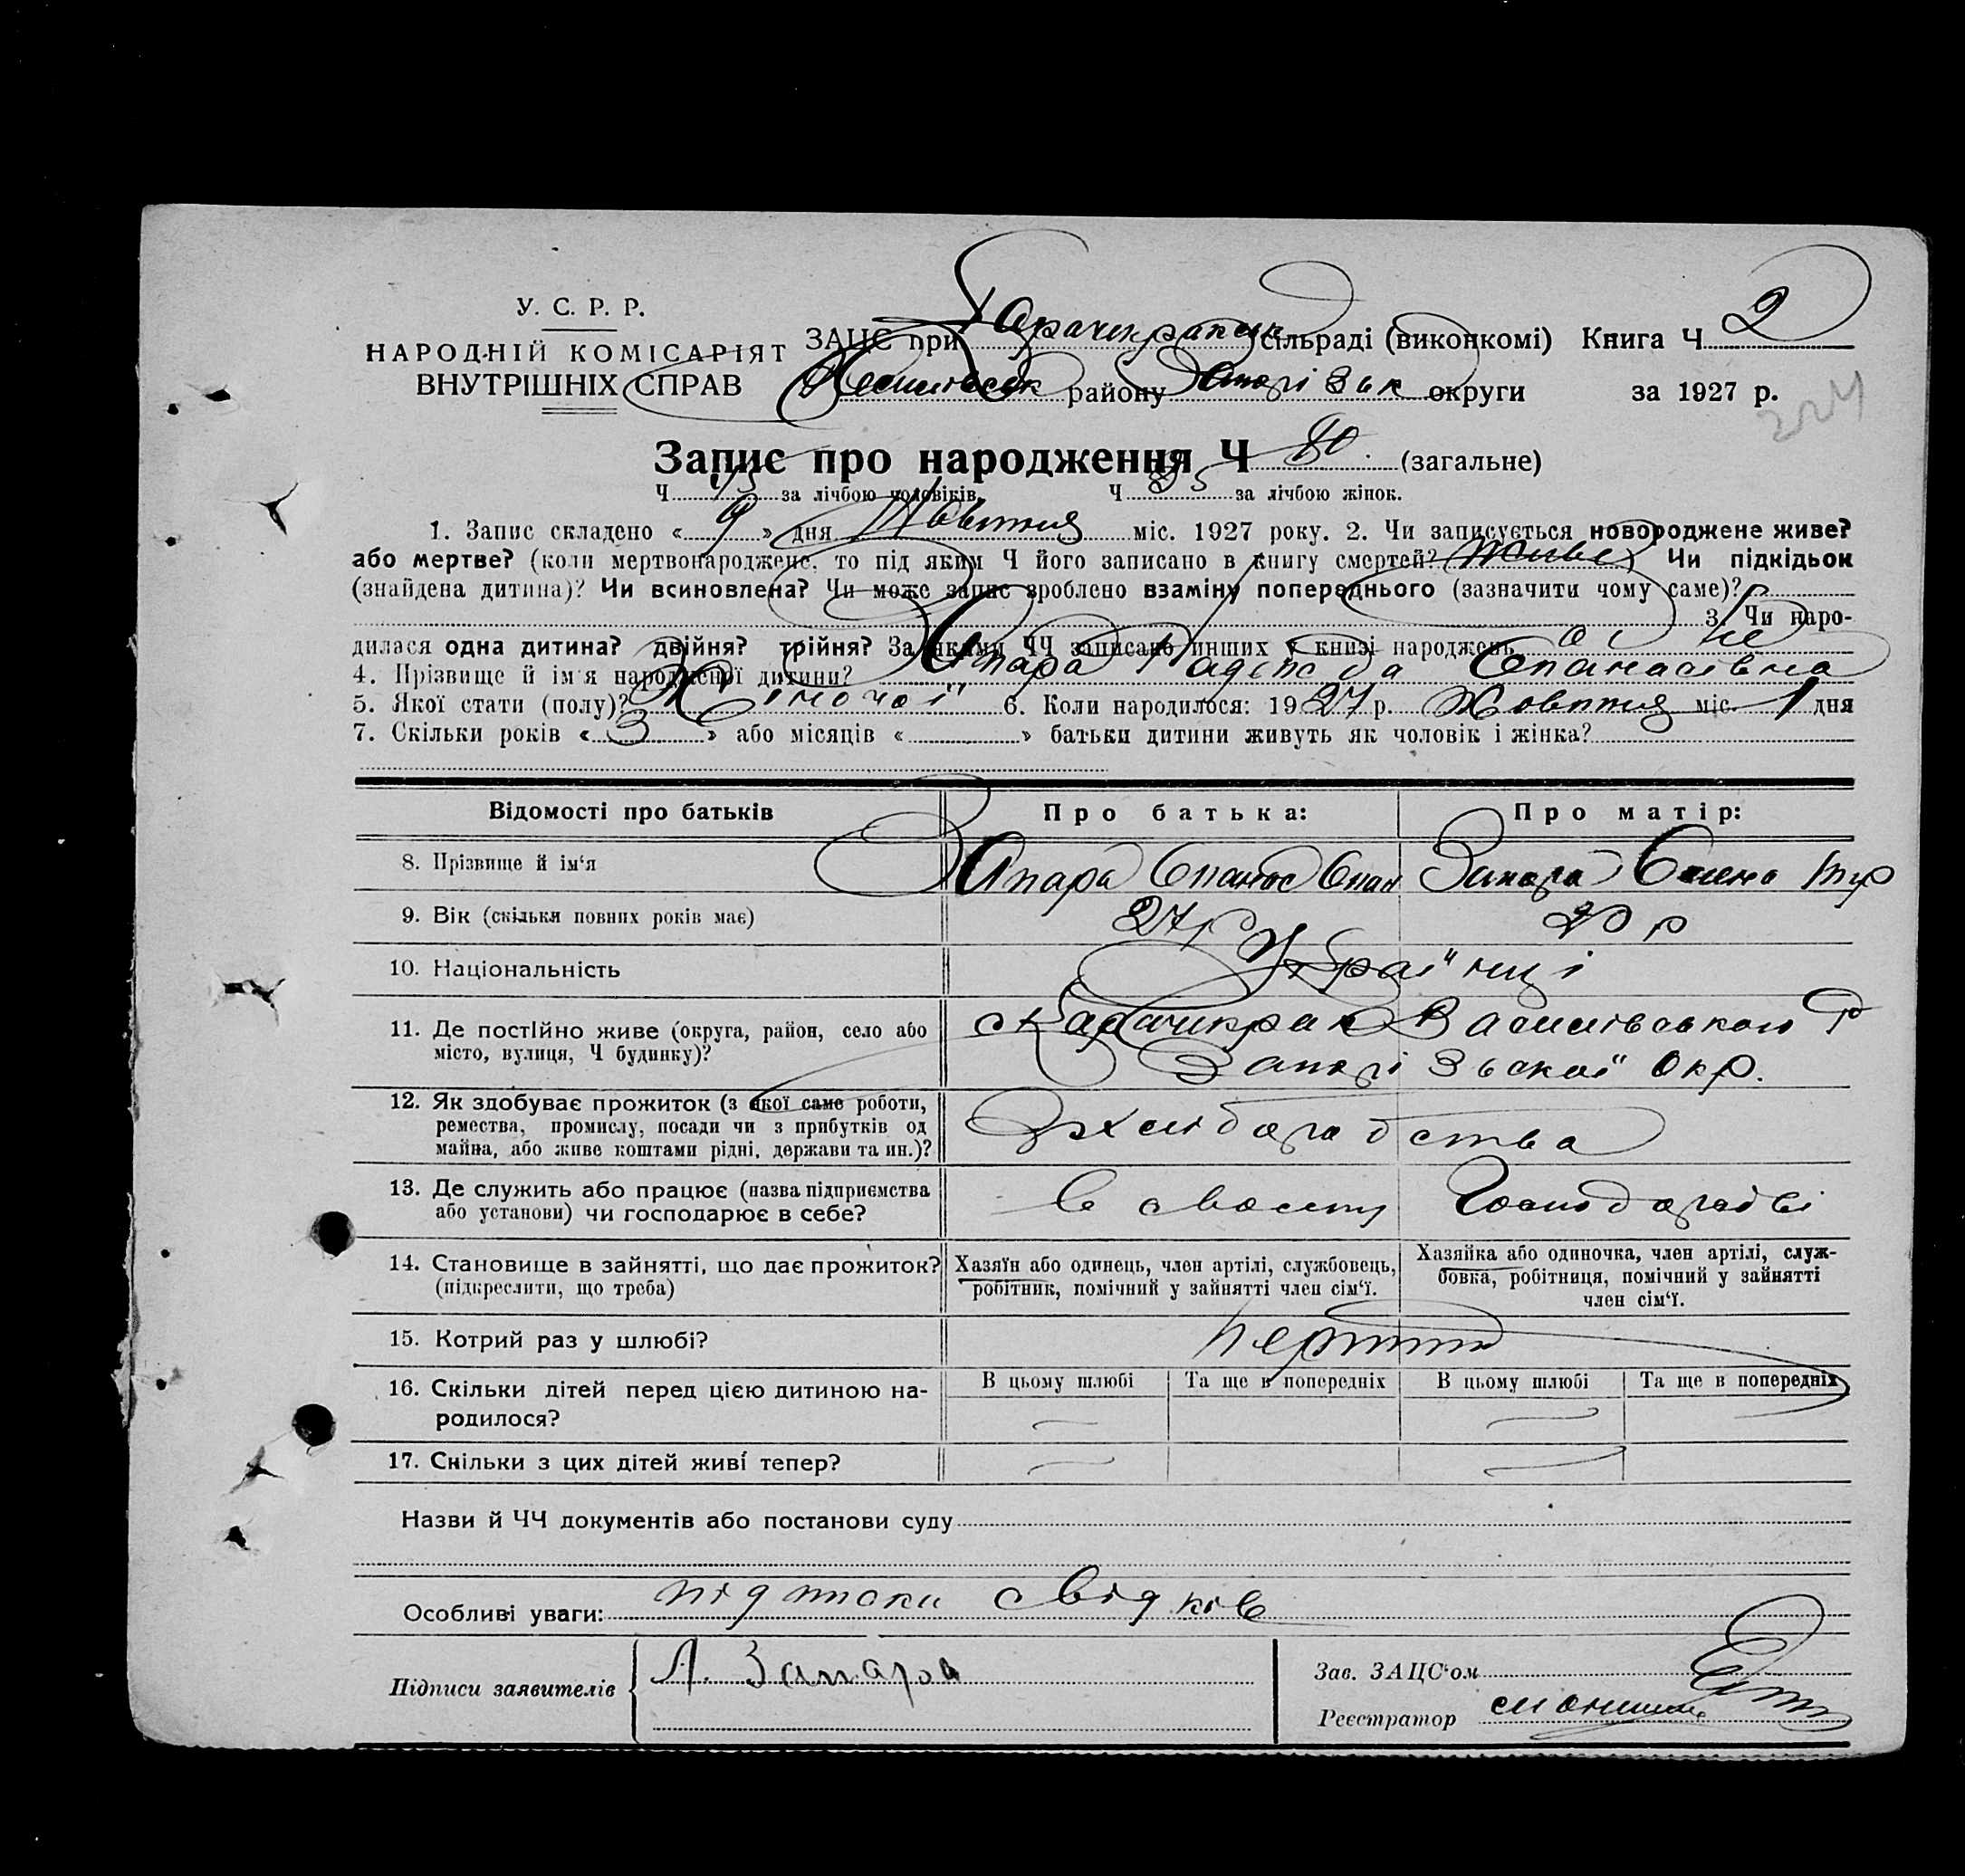 У. С. Р. Р.
НАРОДНІЙ КОМІСАРІЯТ
ВНУТРІШНІХ СПРАВ
ЗАЦС при сільраді (виконкомі) Книга Ч 2
району округи за 1927 р.
224
Запис про народження Ч 80. (загальне)
Ч за лічбою чоловіків. Ч 35 за лічбою жінок.
1. Запис складено « 9 » дня Жовтня міс. 1927 року. 2. Чи записується новороджене живе?
або мертве? (коли мертвонароджене, то під яким Ч його записано в книгу смертей? живе) Чи підкідьок
(знайдена дитина)? Чи всиновлена? Чи може запис зроблено взаміну попереднього (зазначити чому саме)?
3. Чи наро-
дилася одна дитина? двійня? трійня? За якими ЧЧ записано инших у книзі народжень
4. Прізвище й ім'я народженої дитини? Запара Надежда Опанасівна
5. Якої стати (полу)? Жіночої 6. Коли народилося: 1927 р. Жовтня міс. 1 дня
7. Скільки років « 3 » або місяців « » батьки дитини живуть як чоловік і жінка?
Відомості про батьків Про батька: Про матір:
8. Прізвище й ім'я Запара Опанас Опан Запара Олена
9. Вік (скільки повних років має) 27 р 20 р
10. Національність Українці
11. Де постійно живе (округа, район, село або
місто, вулиця, Ч будинку)?
с Карачикрак Василівського Р
Запорізької Окр.
12. Як здобуває прожиток (з якої саме роботи,
ремества, промислу, посади чи з прибутків од
майна, або живе коштами рідні, держави та ин.)?
З хліборобства
13. Де служить або працює (назва підприємства
або установи) чи господарює в себе?
в своєму
14. Становище в зайнятті, що дає прожиток?
(підкреслити, що треба)
Хазяїн або одинець, член артілі, службовець,
робітник, помічний у зайнятті член сім'ї.
Хазяйка або одиночка, член артілі, служ-
бовка, робітниця, помічний у зайнятті
член сім'ї.
15. Котрий раз у шлюбі?
16. Скільки дітей перед цією дитиною на-
родилося?
В цьому шлюбі Та ще в попередніх В цьому шлюбі Та ще в попередніх
17. Скільки з цих дітей живі тепер?
Назви й ЧЧ документів або постанови суду
Особливі уваги: підписки свідків
Підписи заявителів А. Запара
Зав. ЗАЦС'ом
Реєстратор